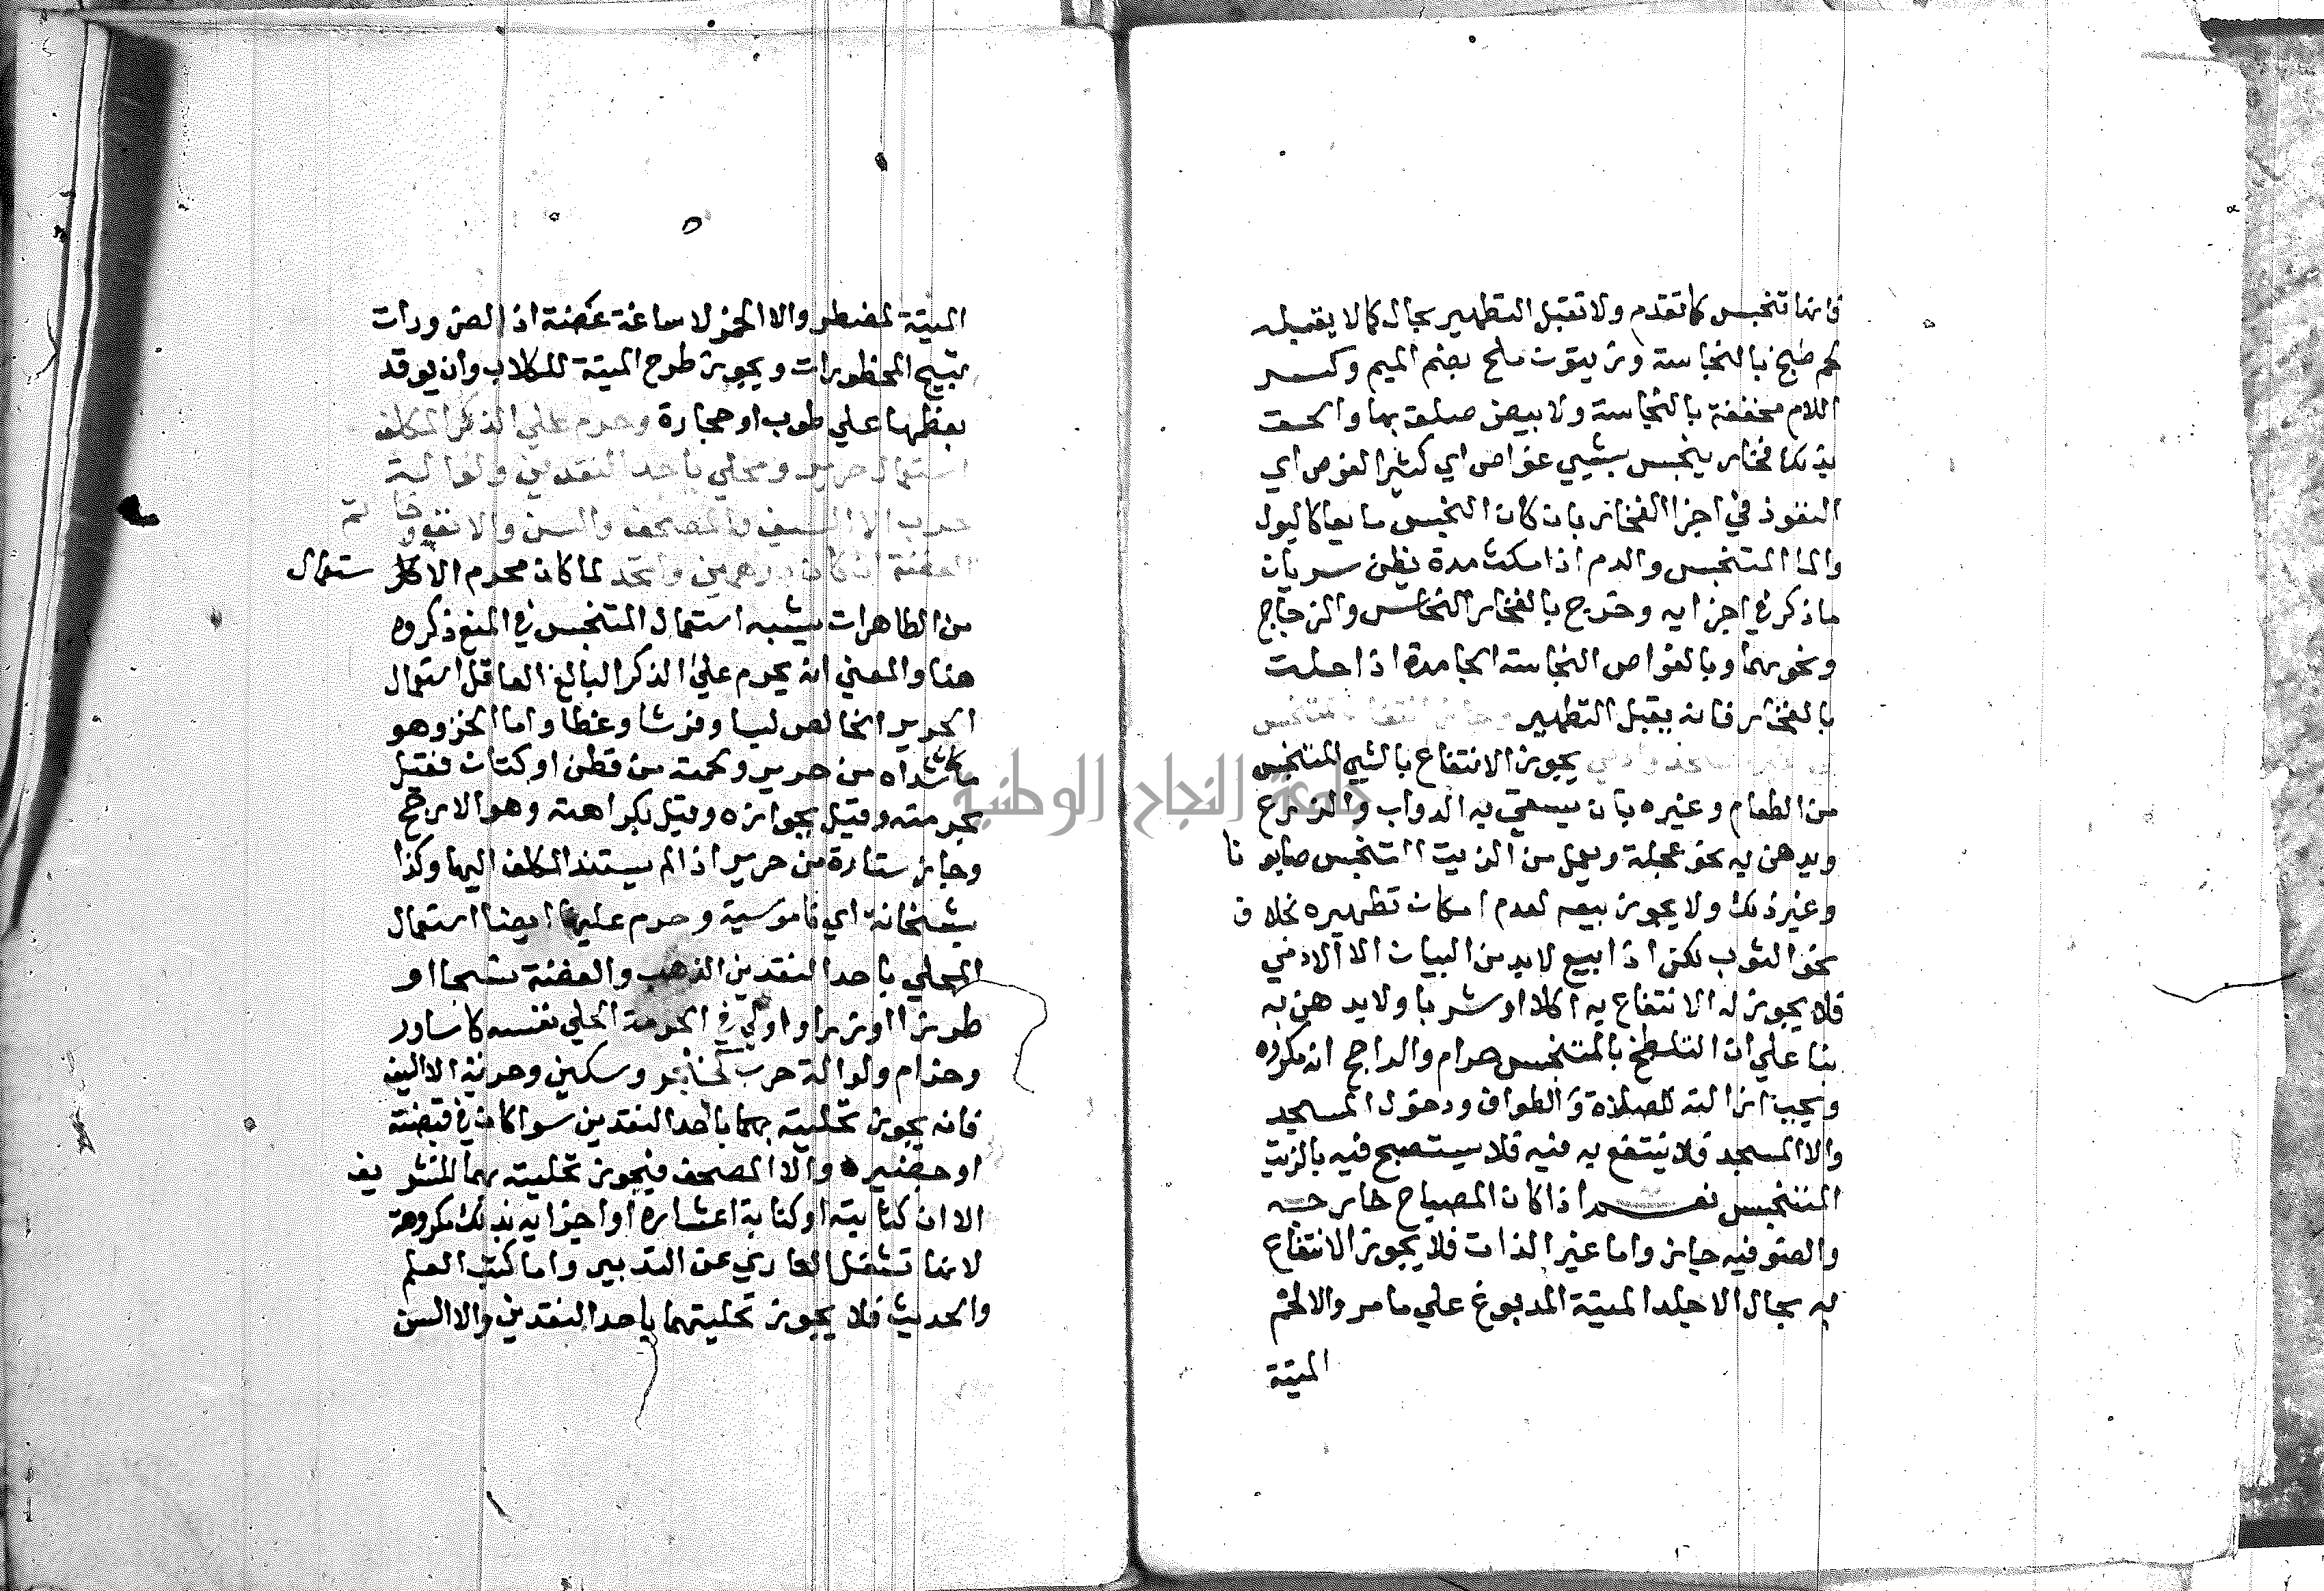 فانها تنجس كما تقدم ولا تقبل التطهير بحال كما لا يقبله
لحم طبخ بالنجاسة وزيتون ملح بضم الميم وكسر
اللام مخففة بالنجاسة ولا بيض صلق بها والحق
بذلك فخار ينجس بشيي غواص اي كثير الغوص اي
النفوذ في اجزا الفخار بان كان النجس مايعا كالبول
والما المتنجس والدم اذا مكث مدة يظن سريان
ما ذكر في اجزايه وخرج بالفخار النحاس والزجاج
ونحوهما وبالغواص النجاسة الجامدة اذا حلت
بالفخار فانه يقبل التطهير وجاز انتفاع بمتنجس
يجوز الانتفاع بالشي المتنجس
من الطعام وغيره بان يسقي به الدواب والزرع
ويدهن به نحو عجلة ويعمل من الزيت المتنجس صابونا
وغير ذلك ولا يجوز بيعه لعدم امكان تطهيره بخلاف
نحو الثوب لكن اذا بيع لابد من البيان الا الادمي
فلا يجوز له الانتفاع به اكلا او شربا ولا يدهن به
بنا علي ان التلطخ بالمتنجس حرام والراجح انه مكروه
ويجب ازالته للصلاة والطواف ودخول المسجد
والا المسجد فلا ينتفع به فيه فلا يستصبح فيه بالزيت
المتنجس نعم اذا كان المصباح خارجه
والضو فيه جايز واما عين الذات فلا يجوز الانتفاع
به بحال الا جلد الميتة المدبوغ علي ما مر والا لحم
الميتة
الميتة لمضطر والا الخمر لاساغة غصة اذ الضرورات
تبيح المحظورات ويجوز طرح الميتة للكلاب وان يوقد
بعظمها علي طوب او حجارة وحرم علي الذكر المكلف
استعمال حرير ومحلي باحد النقدين ولو الة
حرب الا السيف والمصحف والسن والانف وخاتم
الفضة ان كان درهمين واتحد لما كان محرم الاستعمال
من الطاهرات يشبه استعمال المتنجس في المنع ذكروه
هنا والمعني انه يحرم علي الذكر البالغ العاقل استعمال
الحرير الخالص لبسا وفرشا وغطا واما الخز وهو
ما سداه من حرير ولحمته من قطن او كتان فقيل
بحرمته وقيل بجوازه وقيل بكراهته وهو الارجح
وجاز ستارة من حرير اذا لم يستند المكلف اليها وكذا
بشخانة اي ناموسية وحرم عليه ايضا استعمال
المحلي باحد النقدين الذهب والفضة نسجا او
طرزا او زرا واولي في الحرمة الحلي نفسه كاساور
وحزام ولو الة حرب كخنجر وسكين وحربة الا السيف
فانه يجوز تحليته بهما باحد النقدين سوا كان في قبضته
او جفيره والا المصحف فيجوز تحليته بهما للتشريف
الا ان كتابته او كتابة اعشاره او اجزايه بذلك مكروهة
لانها تشغل القاري عن التدبير واما كتب العلم
والحديث فلا يجوز تحليتهما باحد النقدين والا السن
جامعة النجاح الوطنية